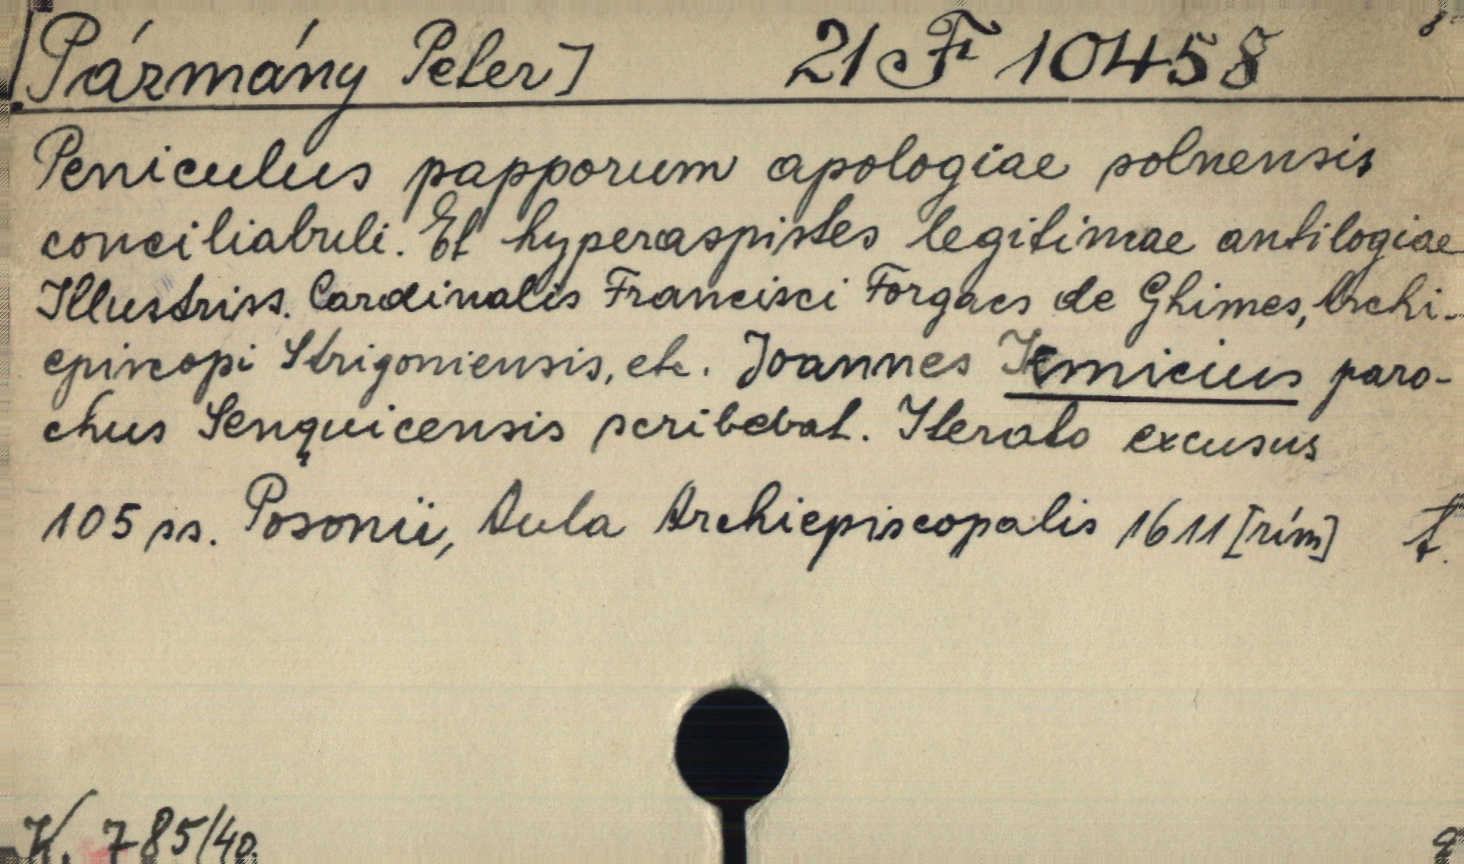 [Pázmány Peter] 21 F 10458 8°
Peniculus papporum apologiae solnensis
conciliabuli. Et hyperaspistes legitimae antilogiae
Illustriss. Cardinalis Francisci Forgacs de Ghimes, Archi-
episcopi Strigoniensis, etc. Joannes Jemicius paro-
chus Senquicensis scribebat. Iterato excusus
105 ss. Posonii, Aula Archiepiscopalis 1611 [rím] t.
K. 785/40.